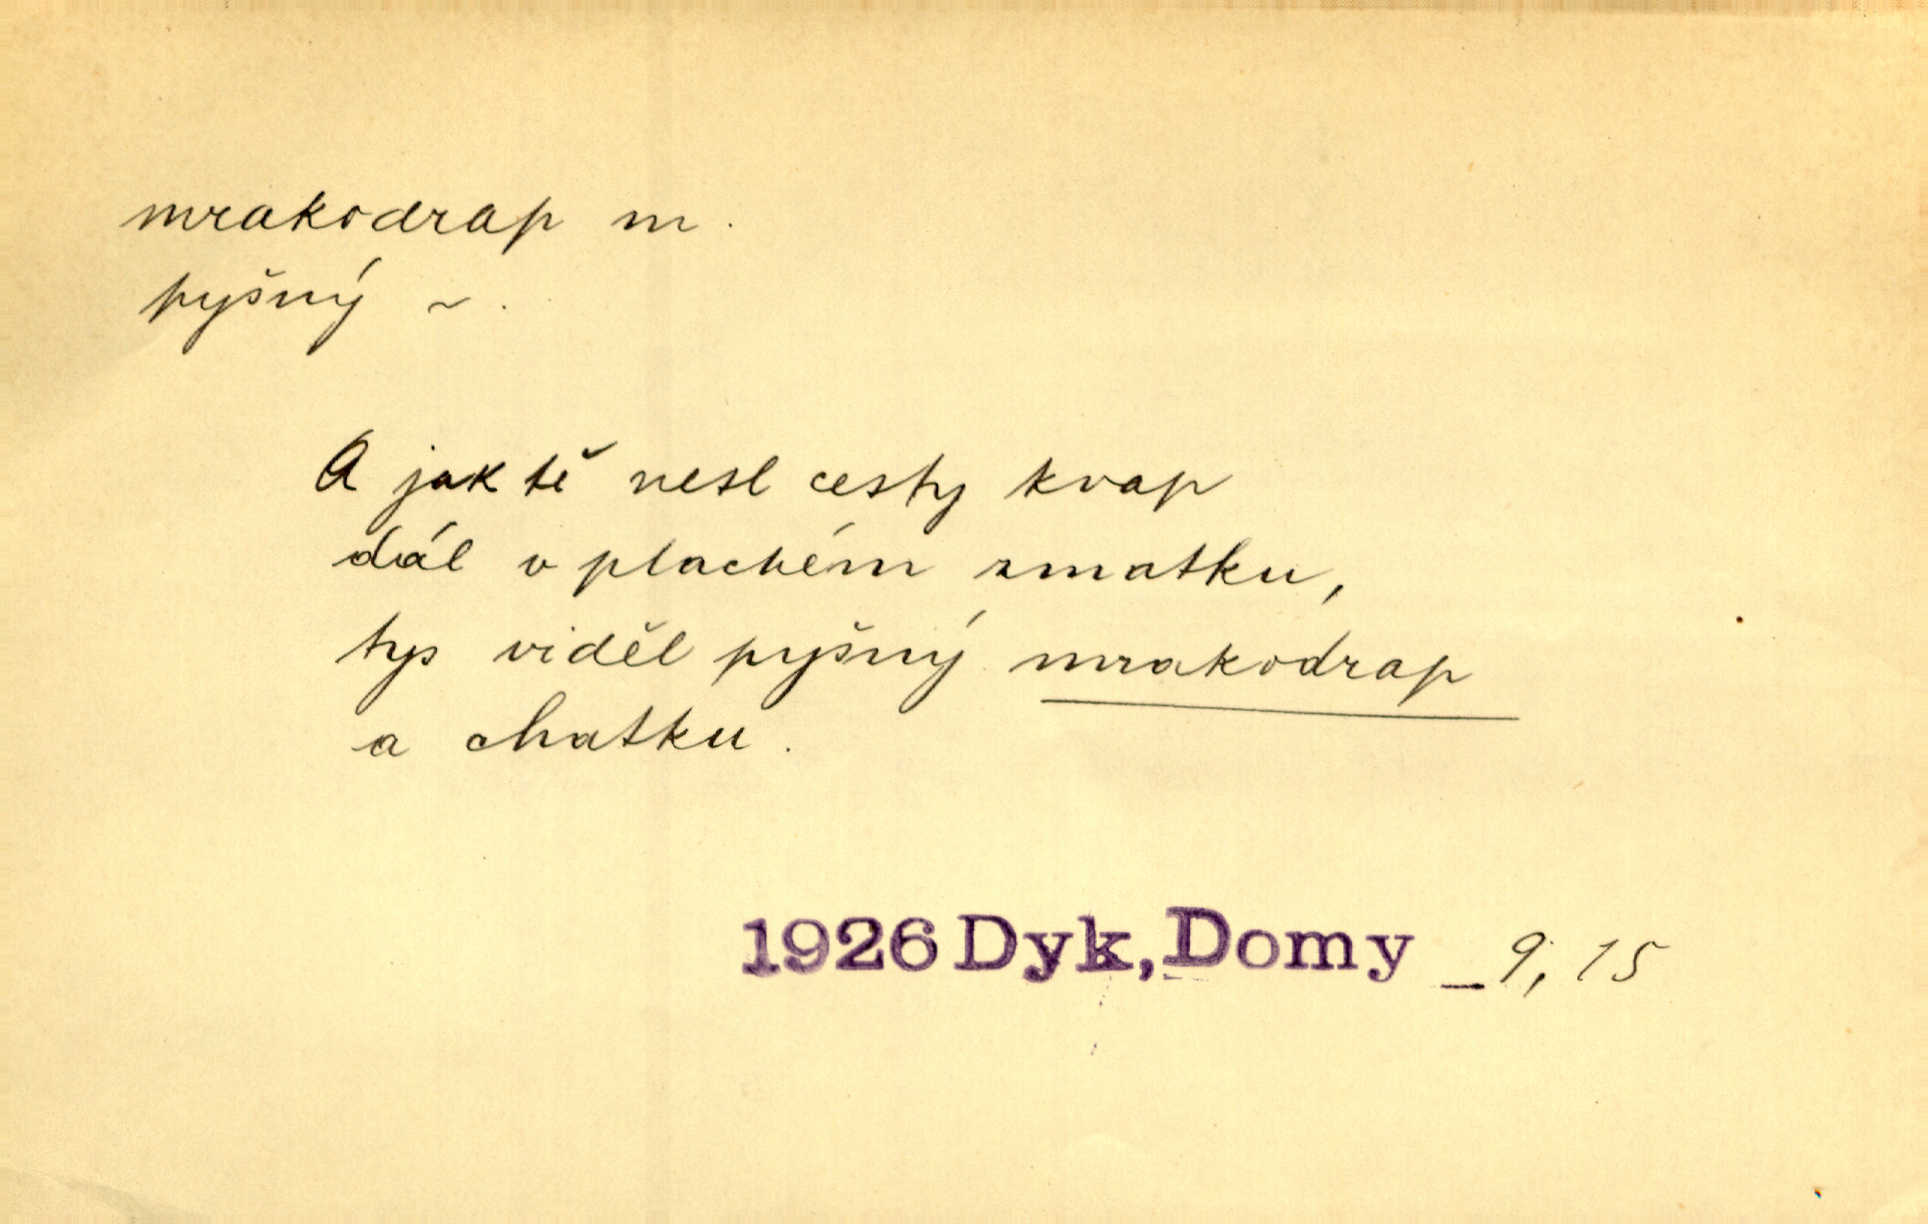 mrakodrap m.
pyšný ~.
A jak tě nesl cesty kvap
dál v plachém zmatku,
tys viděl pyšný mrakodrap
a chatku.
1926 Dyk, Domy _ 9, 15